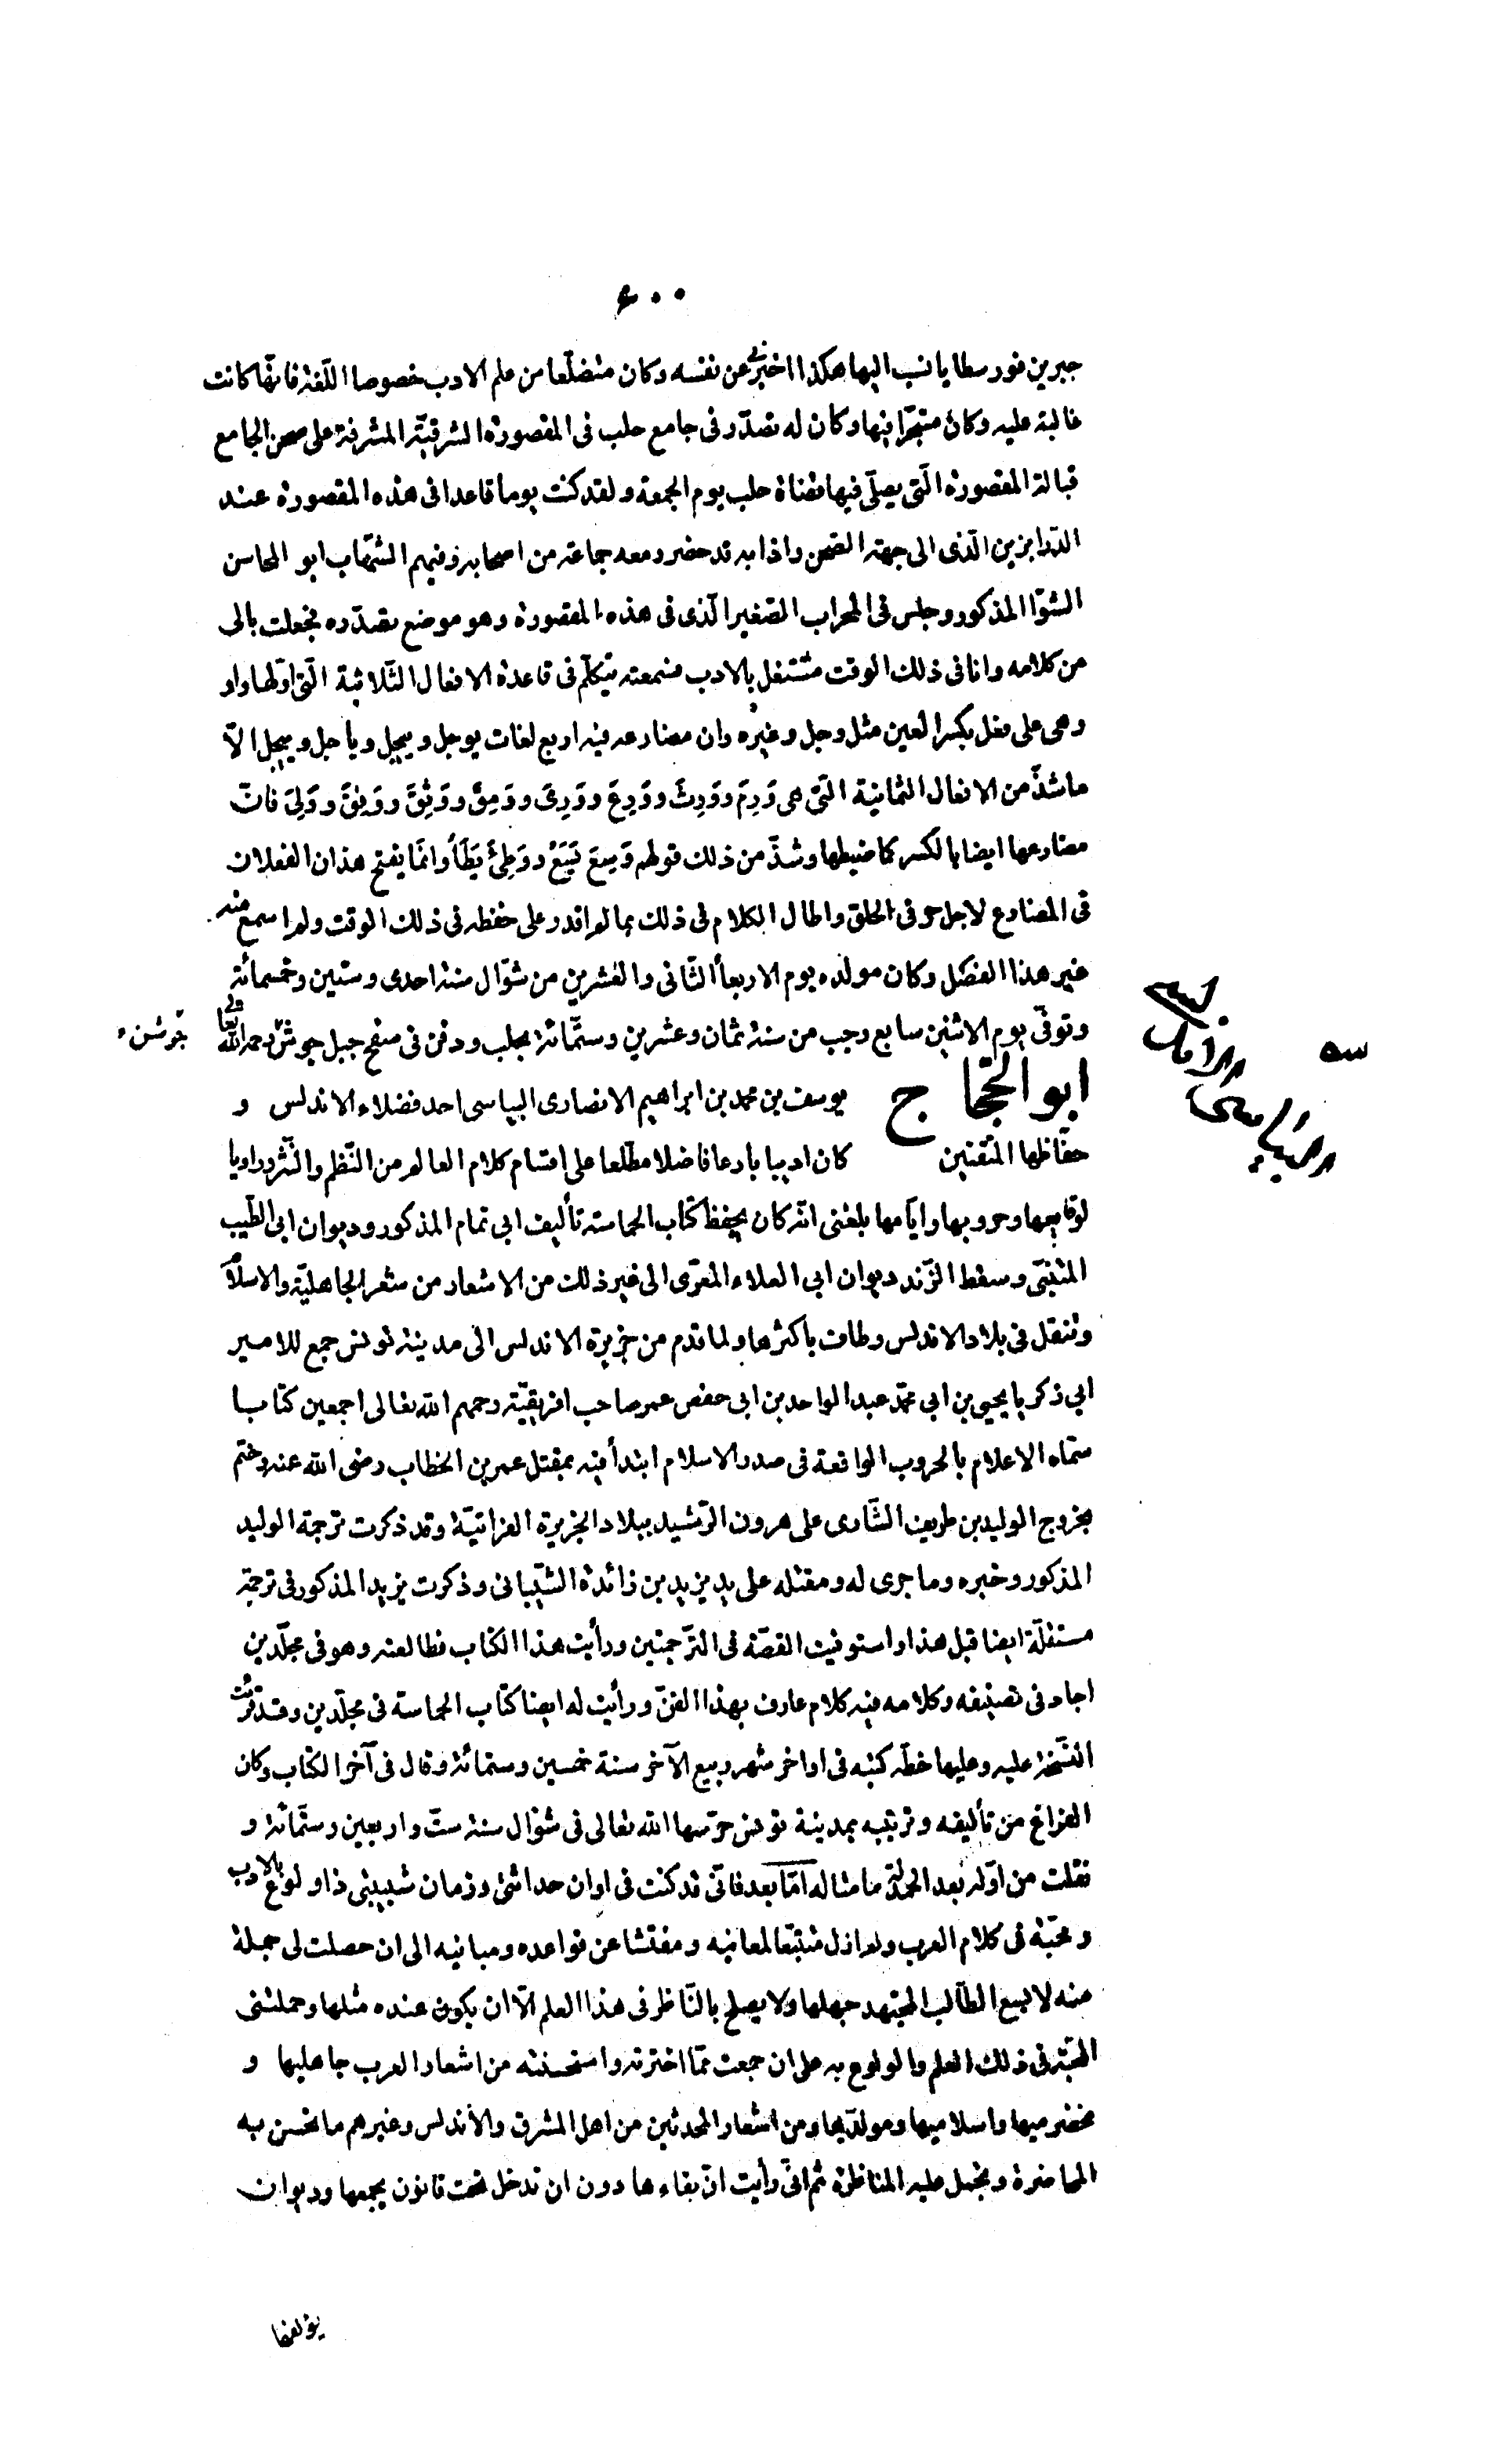 ۶۰۰
جبرين قورسطايا نسب اليها هكذا اخبرنى عن نفسه وكان متضلّعا من علم الادب خصوصا اللّغة فانّها كانت
غالبة عليه وكان متبحّرا فيها وكان له تصدّر فى جامع حلب فى المقصورة الشرقيّة المشرفة على صحن الجامع
قبالة المقصورة الّتى يصلّى فيها قضاة حلب يوم الجمعة ولقد كنت يوما قاعدا فى هذه المقصورة عند
الدّرابزين الّذى الى جهة الصّحن واذا به قد حضر ومعه جماعة من اصحابه وفيهم الشّهاب ابو المحاسن
الشوّا المذكور وجلس فى المحراب الصّغير الّذى فى هذه المقصورة وهو موضع تصدّره فجعلت بالى
من كلامه وانا فى ذلك الوقت مشتغل بالادب فسمعته يتكلّم فى قاعدة الافعال الثّلاثية الّتى اوّلها واو
وهى على فعل بكسر العين مثل وجل وغيره وان مضارعه فيه اربع لغات يوجل وييجل وياجل وييجل الاّ
ما شذّ من الافعال الثمانية الّتى هى وَرِمَ ووَرِثَ ووَرِعَ ووَرِىَ ووَمِقَ ووَثِقَ ووَفِقَ ووَلِىَ فانّ
مضارعها ايضا بالكسر كماضيها وشذّ من ذلك قولهم وَسِعَ يَسَعُ ووَطِئَ يَطَأُ وانّما يفتح هذان الفعلان
فى المضارع لاجل حرف الحلق واطال الكلام فى ذلك بما لم اقدر على حفظه فى ذلك الوقت ولم اسمع منه
غير هذا الفصل وكان مولده يوم الاربعأ الثّانى والعشرين من شوّال سنة احدى وستّين وخمسمائة
وتوفّى يوم الاثنين سابع رجب من سنة ثمان وعشرين وستّمائة بحلب ودفن فى سفح جبل جوشن رحمه الله تعالى
جَوشن
ابو الحجّاج يوسف بن محمد بن ابراهيم الانصارى البياسى احد فضلاء الاندلس و
حفّاظها المتقنين كان اديبا بارعا فاضلا مطّلعا على اقسام كلام العالم من النّظم والنّثر وراويا
لوقايعها وحروبها وايّامها بلغنى انّه كان يحفظ كتاب الحماسة تأليف ابى تمام المذكور وديوان ابى الطّيب
المتنبّى وسقط الزّند ديوان ابى العلاء المعرّى الى غير ذلك من الاشعار من شعر الجاهليّة والاسلام
وتنقل فى بلاد الاندلس وطاف باكثرها ولما قدم من جزيرة الاندلس الى مدينة تونس جمع للامير
ابى زكريا يحيى بن ابى محمّد عبد الواحد بن ابى حفص عمر صاحب افريقيّة رحمهم الله تعالى اجمعين كتابا
سمّاه الاعلام بالحروب الواقعة فى صدر الاسلام ابتدأ فيه بمقتل عمر بن الخطاب رضى الله عنه وختم
بخروج الوليد بن طريف الشّارى على هرون الرّشيد ببلاد الجزيرة الفراتيّة وقد ذكرت ترجمة الوليد
المذكور وخبره وما جرى له ومقتله على يد يزيد بن زائدة الشّيبانى وذكرت يزيد المذكور فى ترجمة
مستقلّة ايضا قبل هذا واستوفيت القصّة فى التّرجمتين ورأيت هذا الكتاب فطالعته وهو فى مجلّدين
اجاد فى تصنيفه وكلامه فيه كلام عارف بهذا الفنّ ورأيت له ايضا كتاب الحماسة فى مجلّدين وقد قرئت
النّسخة عليه وعليها خطّه كتبه فى اواخر شهر ربيع الآخر سنة خمسين وستمائة وقال فى آخر الكتاب وكان
الفراغ من تأليفه وترتيبه بمدينة تونس حرّسها الله تعالى فى شوّال سنة ستّ واربعين وستّمائة و
نقلت من اوّله بعد الحمدلة ما مثاله امّا بعد فانّى قد كنت فى اوان حداثتى وزمان شبيبتى ذا ولوع بالادب
ومحبّة فى كلام العرب ولم ازل متتبّعا لمعانيه ومفتّشا عن قواعده ومبانيه الى ان حصلت لى جملة
منه لا يسع الطّالب المجتهد جهلها ولا يصلح بالنّاظر فى هذا العلم الاّ ان يكون عنده مثلها وحملتنى
المحبّة فى ذلك العلم والولوع به على ان جمعت ممّا اخترته واستحسنته من اشعار العرب جاهليها و
مخضرميها واسلاميها ومولّديها ومن اشعار المحدثين من اهل المشرق والأندلس وغيرهم ما تحسن به
المحاضرة وتجمل عليه المناظرة ثم انّى رأيت انّ بقاءها دون ان تدخل تحت قانون يجمعها وديوان
يؤلفها